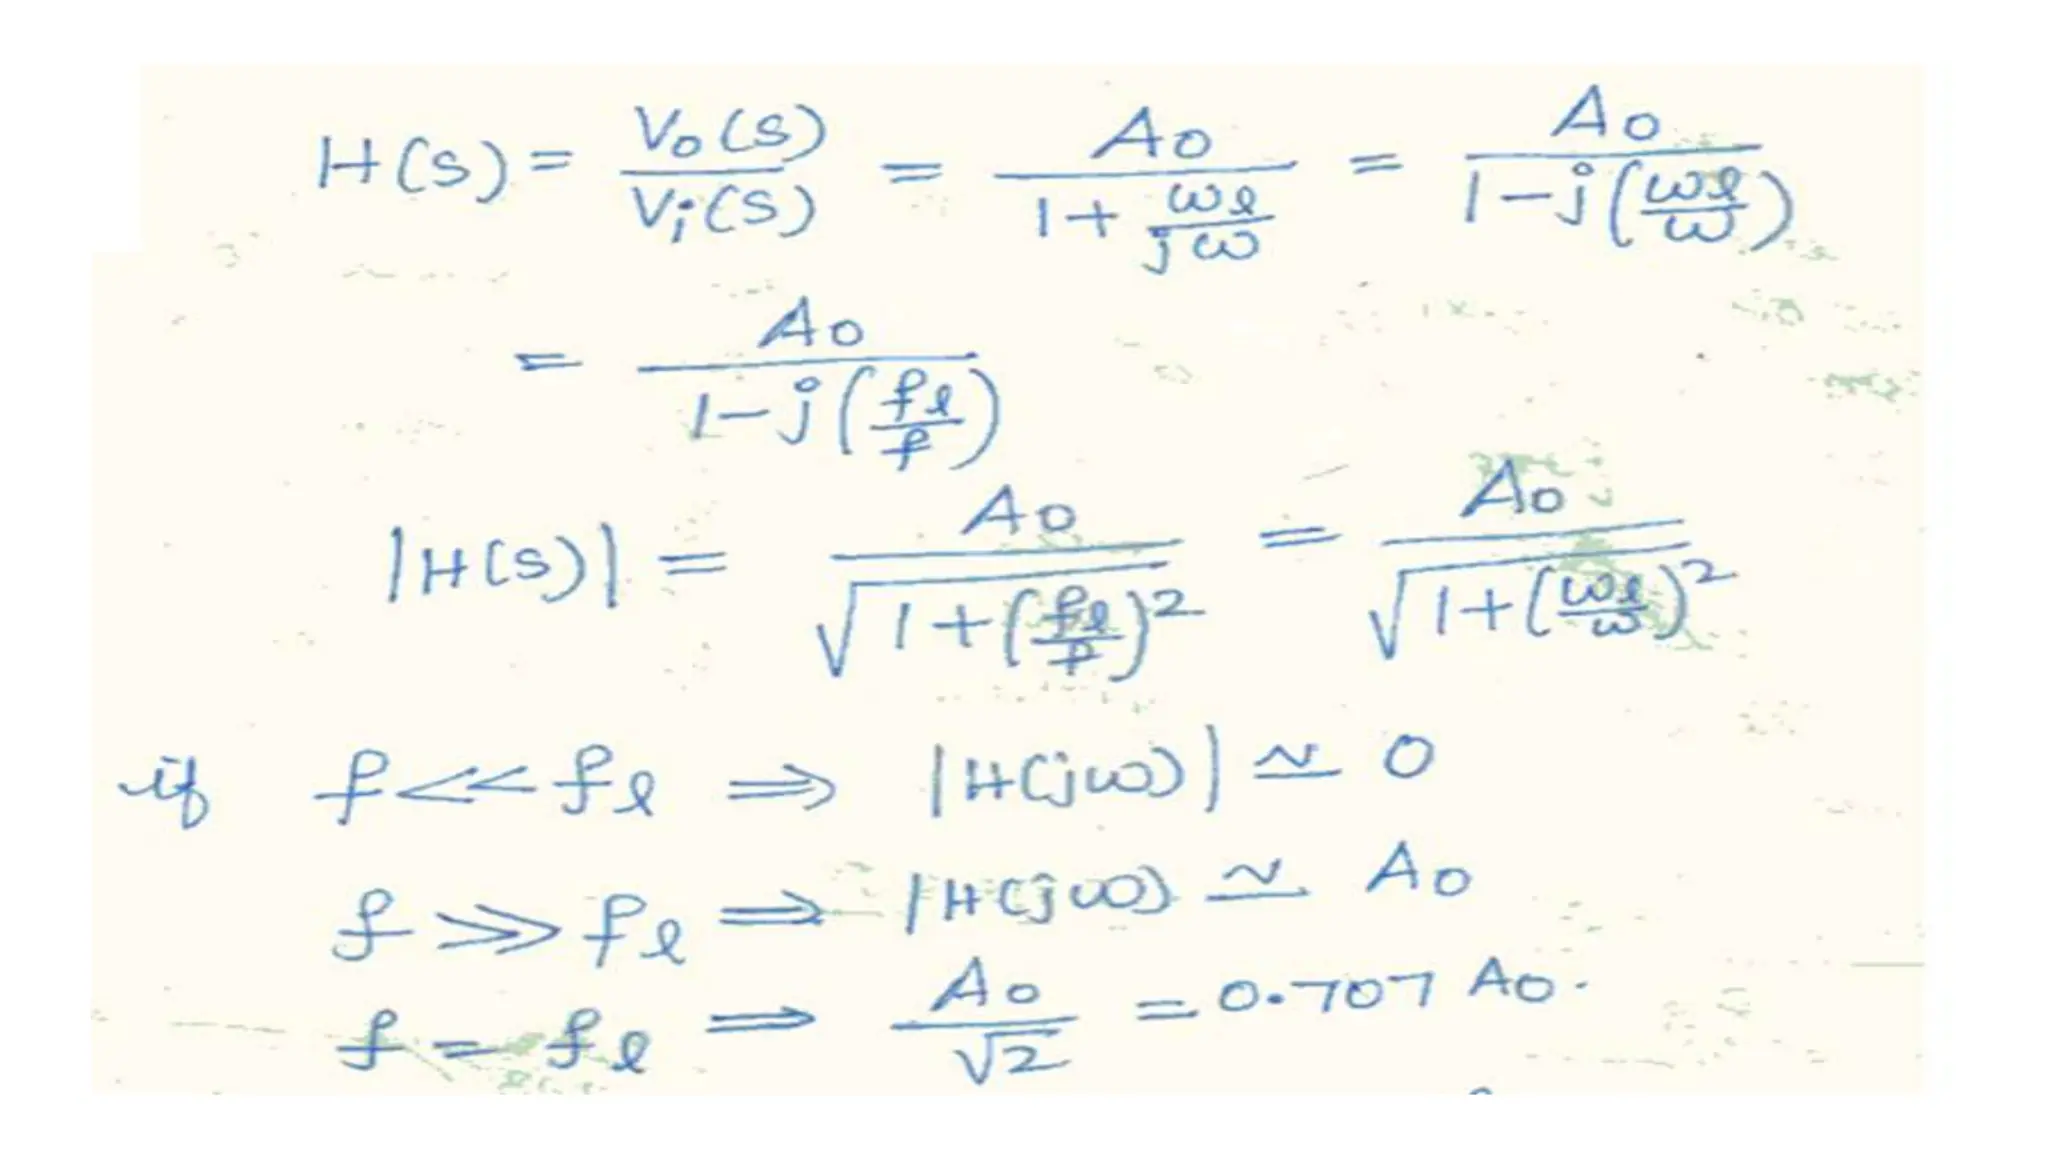 H(s) = Vo(s)/Vi(s) = Ao/(1 + ωℓ/jω) = Ao/(1 - j(ωℓ/ω))
= Ao/(1 - j(fℓ/f))
|H(s)| = Ao/√(1 + (fℓ/f)²) = Ao/√(1 + (ωℓ/ω)²)
if f << fℓ ⇒ |H(jω)| ≃ 0
f >> fℓ ⇒ |H(jω) ≃ Ao
f = fℓ ⇒ Ao/√2 = 0.707 Ao.